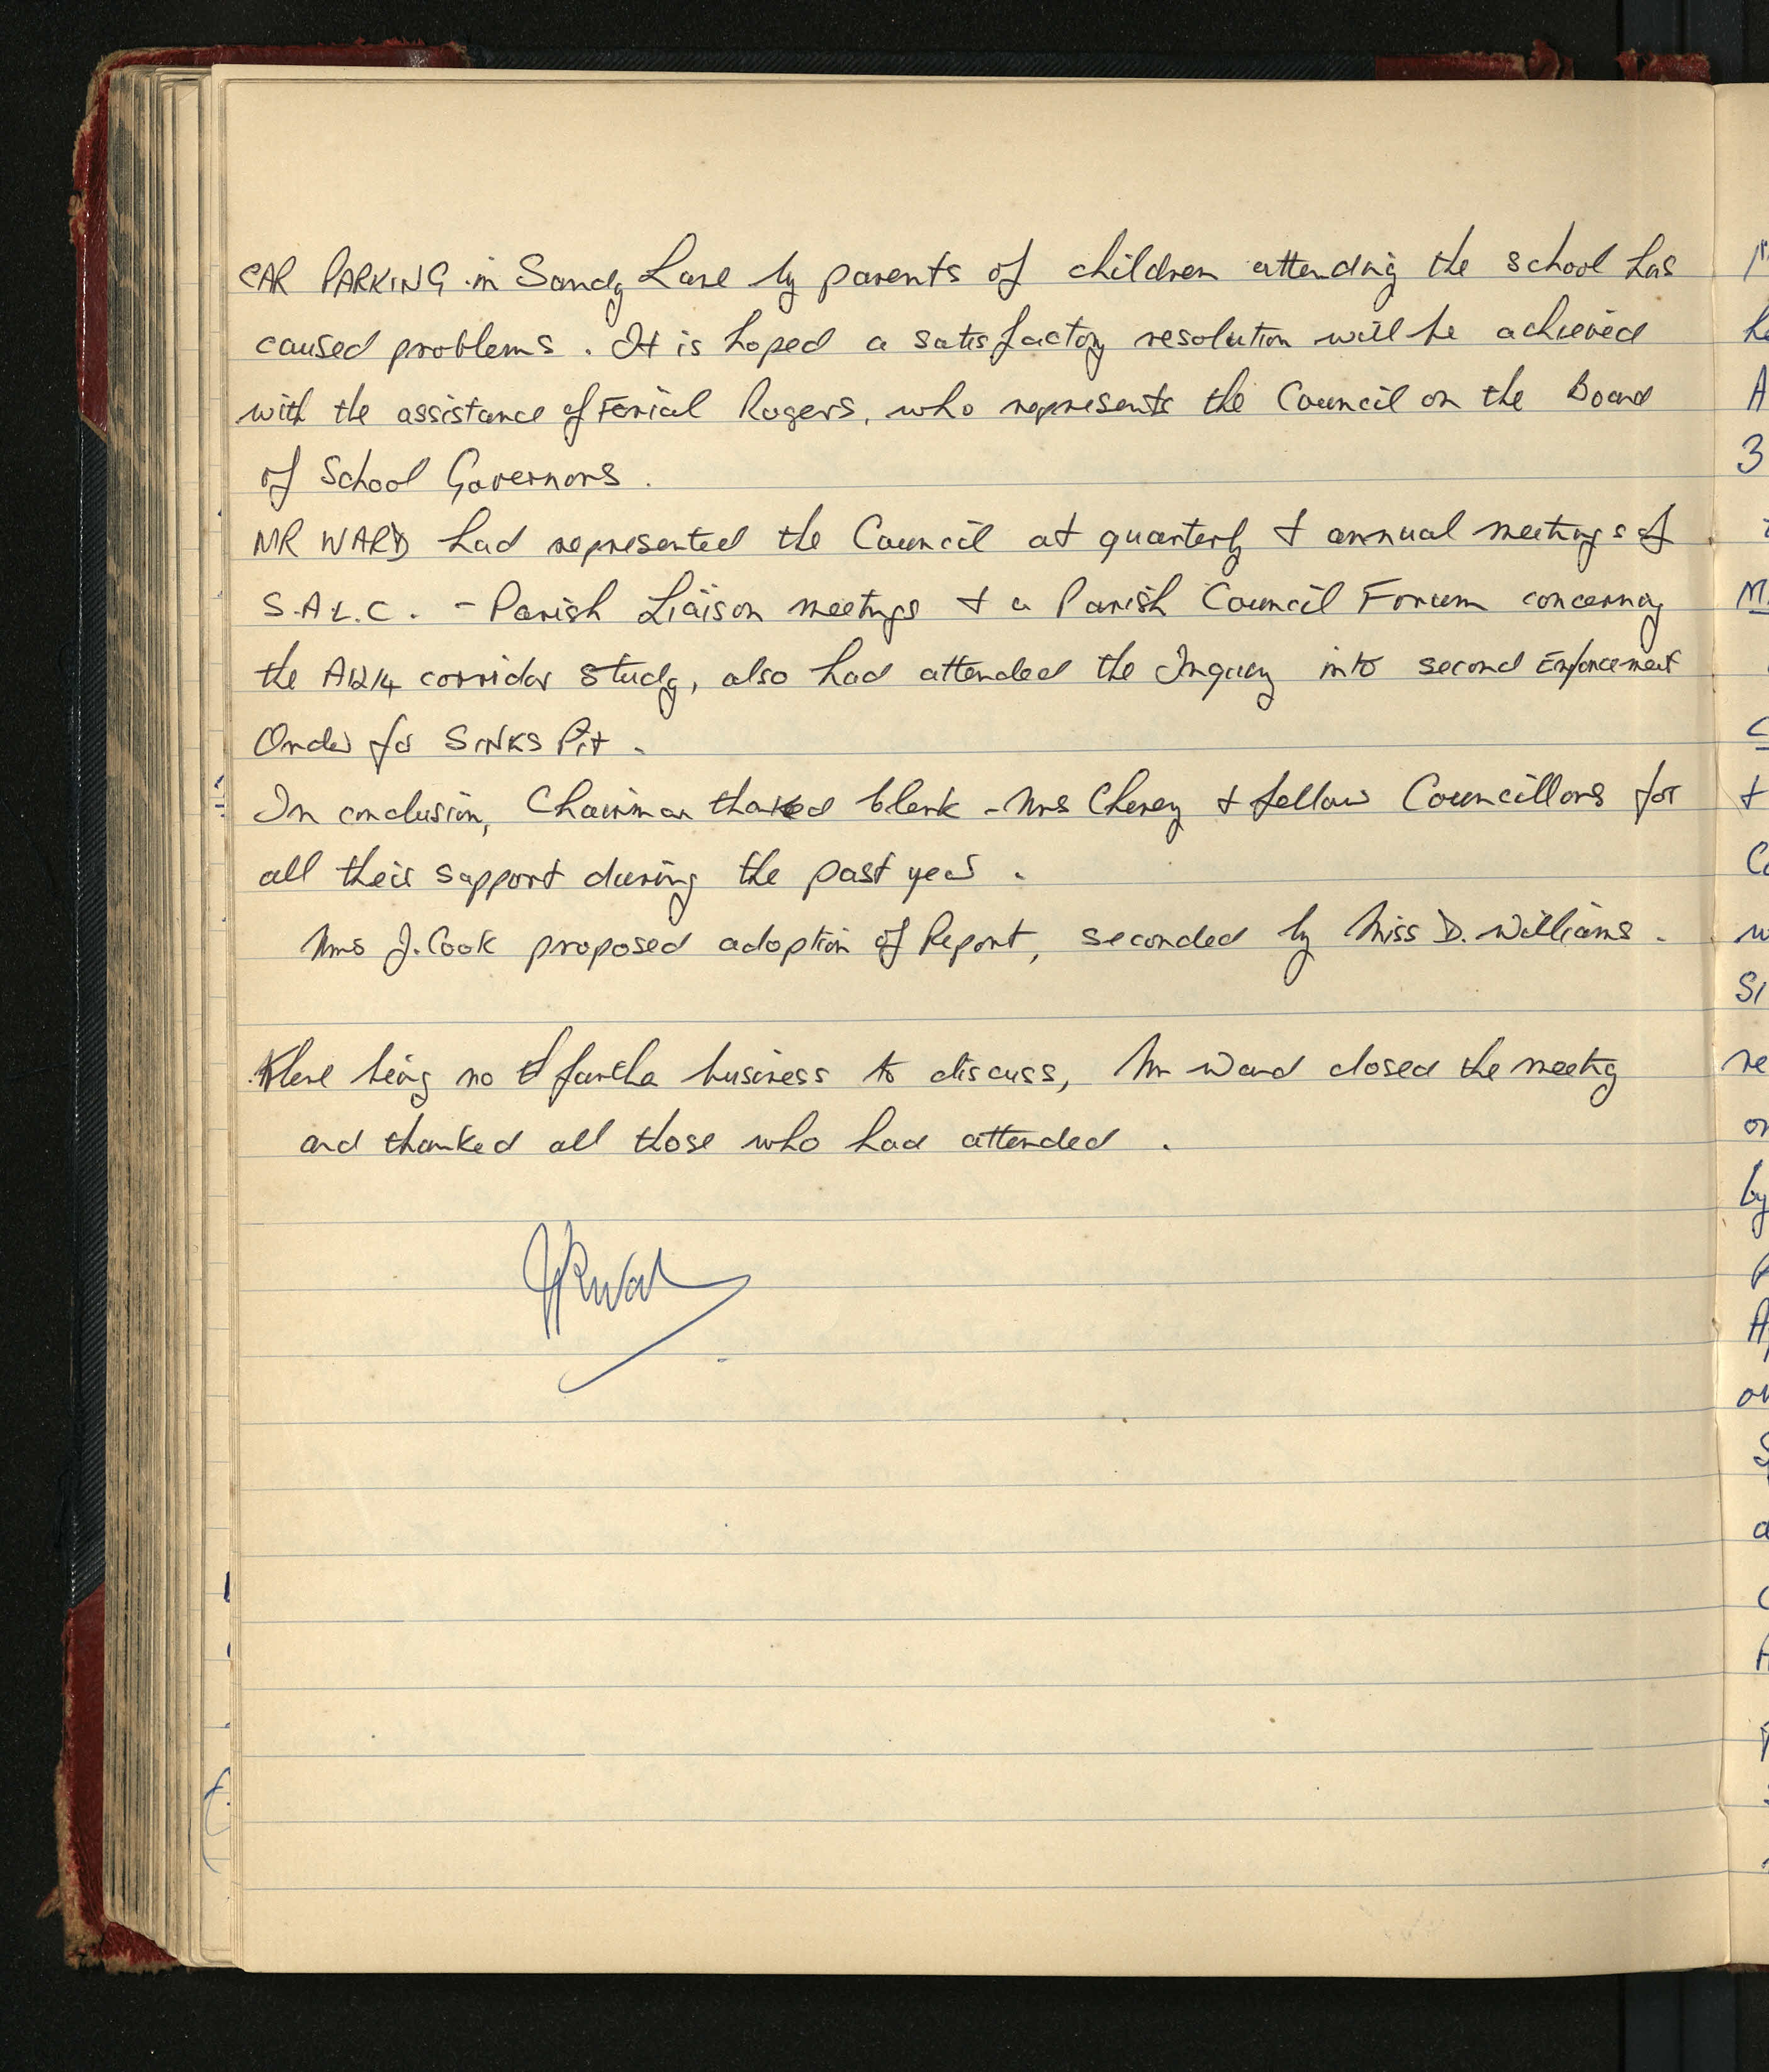 CAR PARKING in Sandy Lane by parents of children attending the school has
caused problems. It is hoped a satisfactory resolution will be achieved
with the assistance of Ferial Rogers, who represents the Council on the Board
of School Governors.
MR WARD had represented the Council at quarterly & annual meetings of
S.A.L.C. - Parish Liaison meetings & a Parish Council Forum concerning
the A12/14 corridor study, also had attended the Inquiry into second Enforcement
Order for SINKS Pit.
In conclusion, Chairman thanked Clerk - Mrs Cheney & fellow Councillors for
all their support during the past year.
Mrs J. Cook proposed adoption of Report, seconded by Miss D. Williams.
There being no further business to discuss, Mr Ward closed the meeting
and thanked all those who had attended.